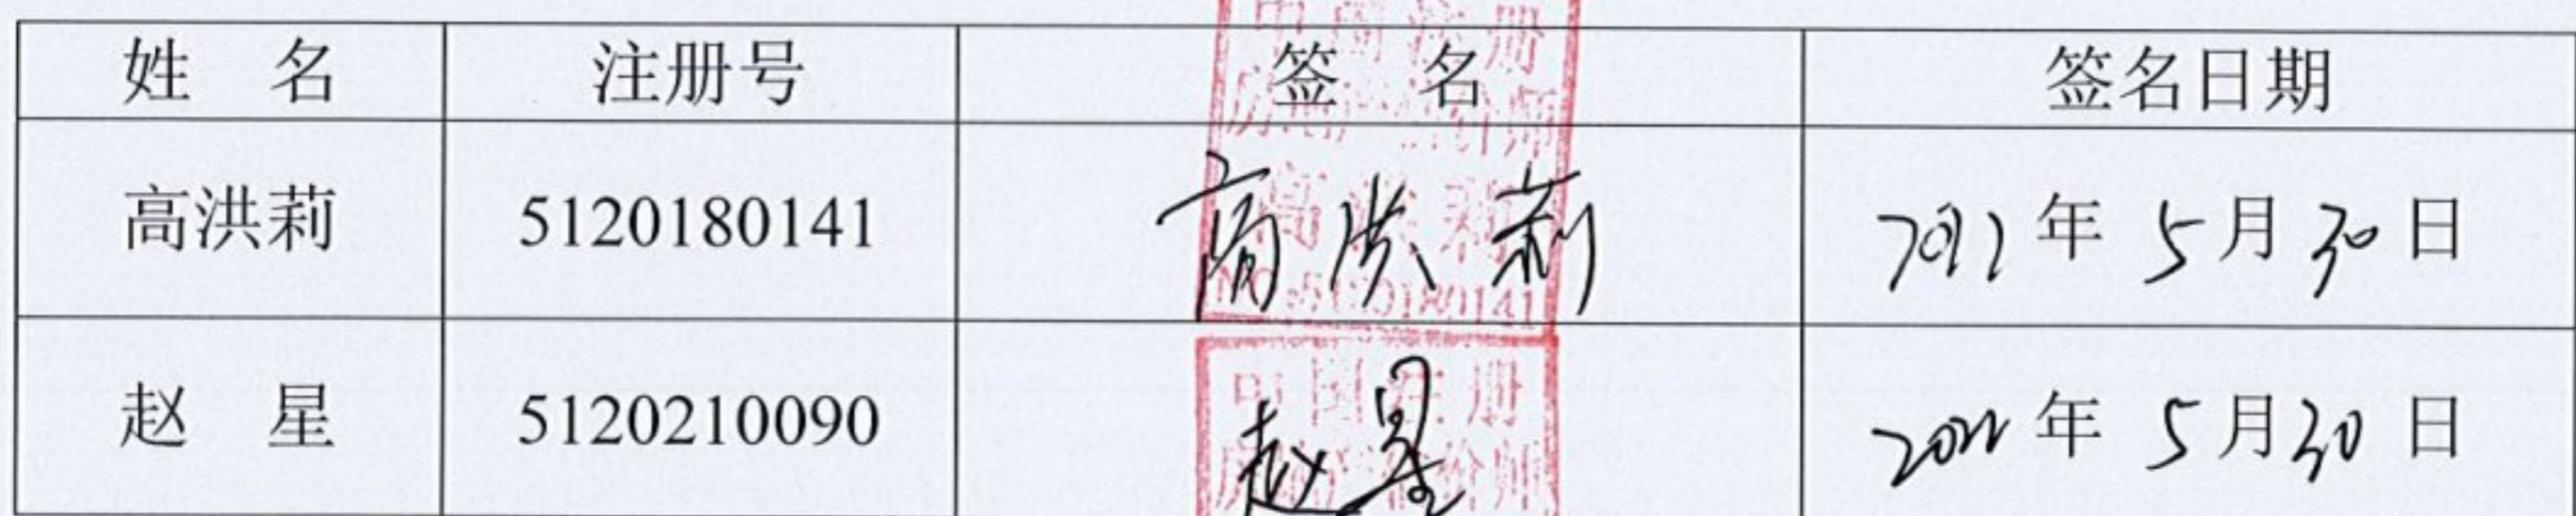 姓 名 注册号 签 名 签名日期
高洪莉 5120180141 高洪莉 年 5月30日
赵 星 5120210090 赵星 2022年 5月30日